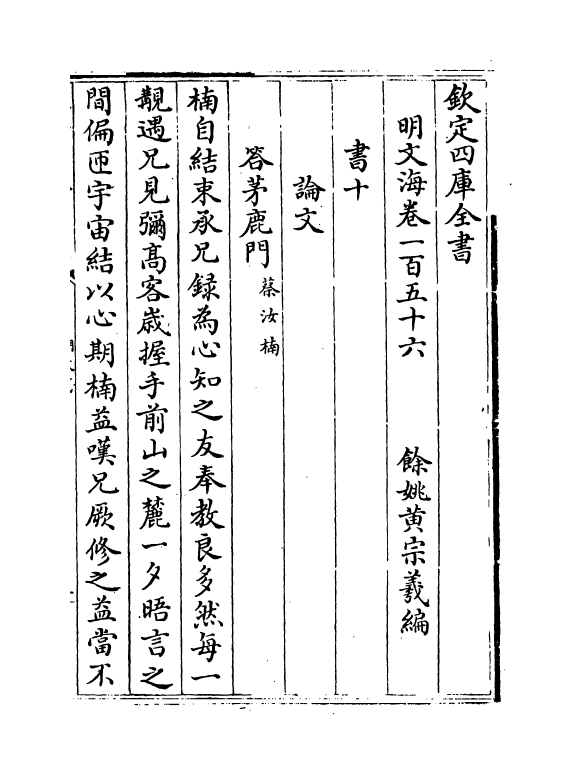 欽定四庫全書
明文海卷一百五十六　餘姚黃宗羲編
書十
論文
答茅鹿門　蔡汝楠
楠自結束承兄録為心知之友奉教良多然每一
覯遇兄見彌髙客歲握手前山之麓一夕晤言之
間偏匝宇宙結以心期楠益嘆兄厥修之益當不